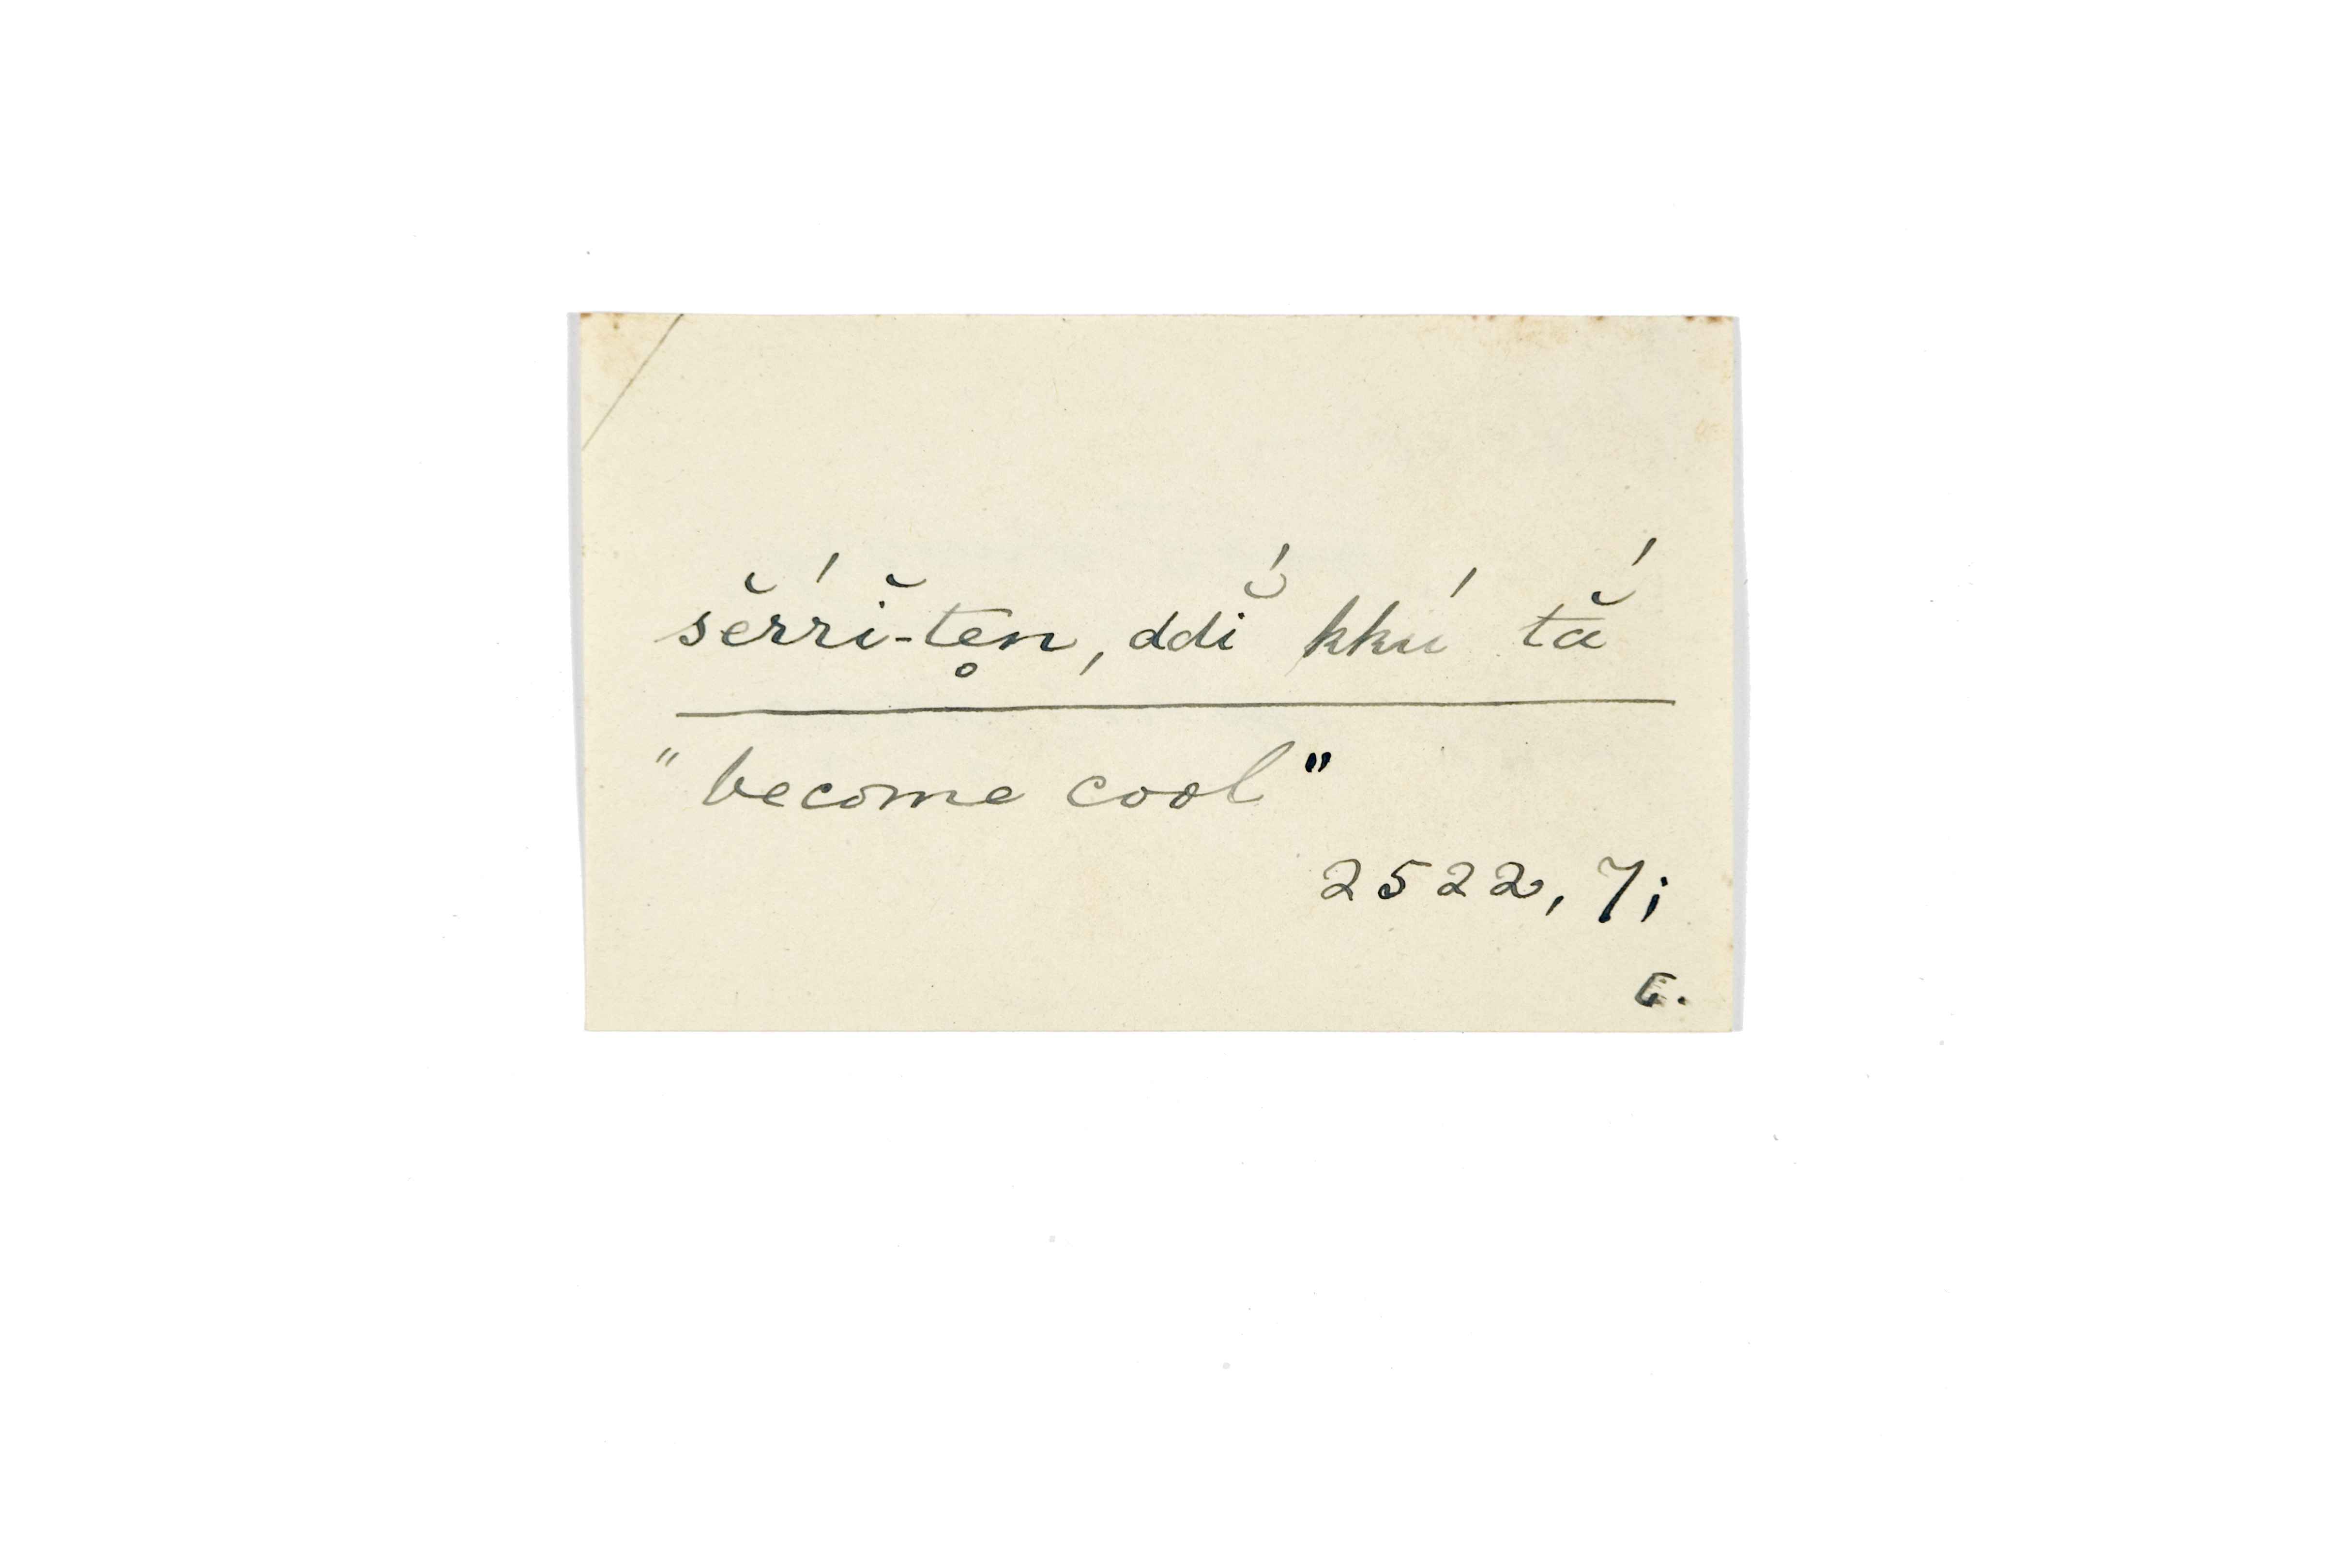 sĕ́rrĭ-te̥n, ddĭ́ kkú tắ
"become cool"
2522, 7;
E.